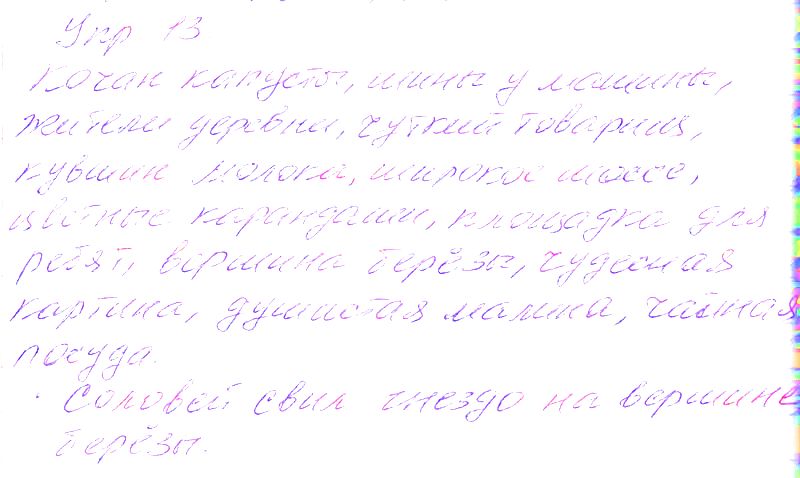 Упр 13
Кочан капусты, шины у машины,
жители деревни, чуткий товарищ,
кувшин молока, широкое шоссе,
цветные карандаши, площадка для
ребят, вершина берёзы, чудесная
картина, душистая малина, чайная
посуда.
Соловей свил гнездо на вершине
берёзы.